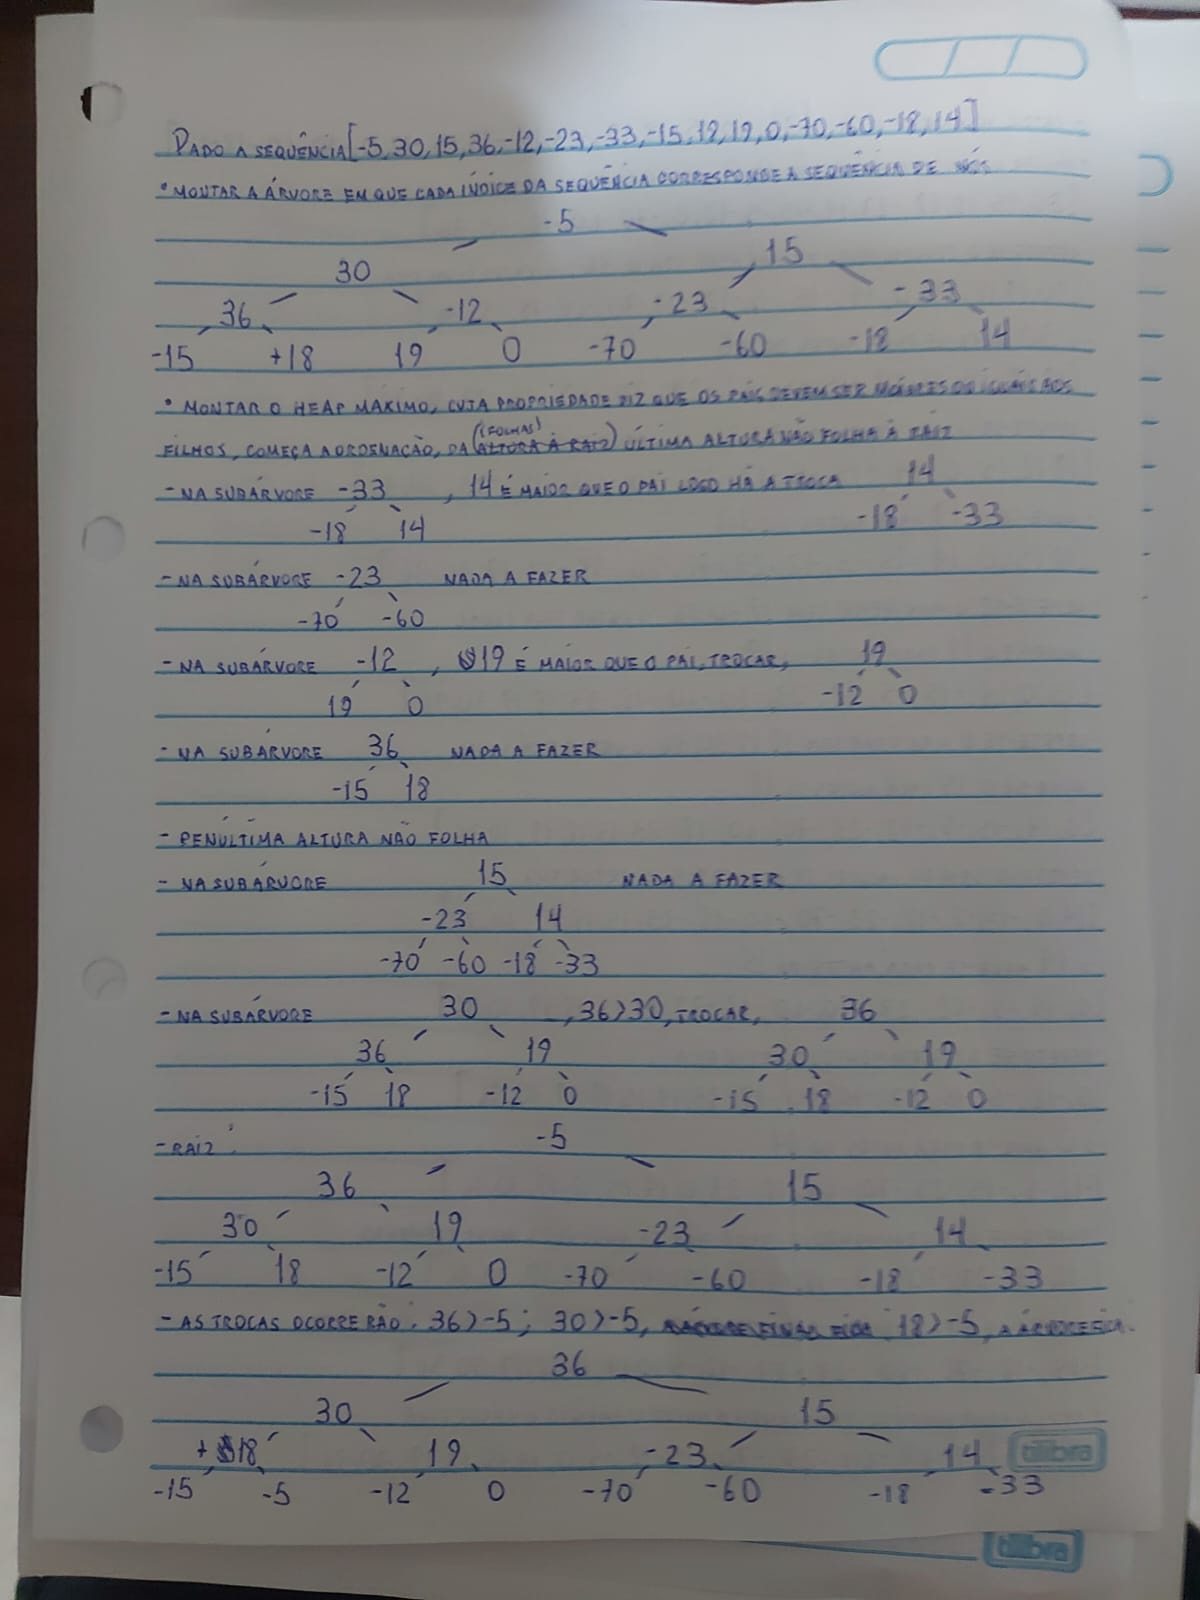 DADO A SEQUÊNCIA[-5,30,15,36,-12,-23,-33,-15,18,19,0,-70,-60,-18,14]
• MONTAR A ÁRVORE EM QUE CADA ÍNDICE DA SEQUÊNCIA CORRESPONDE A SEQUÊNCIA DE NÓS
-5
30 15
36 -12 -23 -33
-15 +18 19 0 -70 -60 -18 14
• MONTAR O HEAP MÁXIMO, CUJA PROPRIEDADE DIZ QUE OS PAIS DEVEM SER MAIORES OU IGUAIS AOS
(FOLHAS)
FILHOS, COMEÇA A ORDENAÇÃO, DA (ALTURA À RAIZ) ÚLTIMA ALTURA NÃO FOLHA À RAIZ
- NA SUBÁRVORE -33 , 14 É MAIOR QUE O PAI LOGO HÁ A TROCA 14
-18 14 -18 -33
- NA SUBÁRVORE -23 NADA A FAZER
-70 -60
- NA SUBÁRVORE -12 , 19 É MAIOR QUE O PAI, TROCAR, 19
19 0 -12 0
- NA SUBÁRVORE 36 NADA A FAZER
-15 18
- PENÚLTIMA ALTURA NÃO FOLHA
- NA SUBÁRVORE 15 NADA A FAZER
-23 14
-70 -60 -18 -33
- NA SUBÁRVORE 30 , 36>30, TROCAR, 36
36 19 30 19
-15 18 -12 0 -15 18 -12 0
- RAIZ: -5
36 15
30 19 -23 14
-15 18 -12 0 -70 -60 -18 -33
- AS TROCAS OCORRERÃO: 36>-5; 30>-5, 18>-5, A ÁRVORE FICA:
36
30 15
+18 19 -23 14
-15 -5 -12 0 -70 -60 -18 -33
tilibra
tilibra